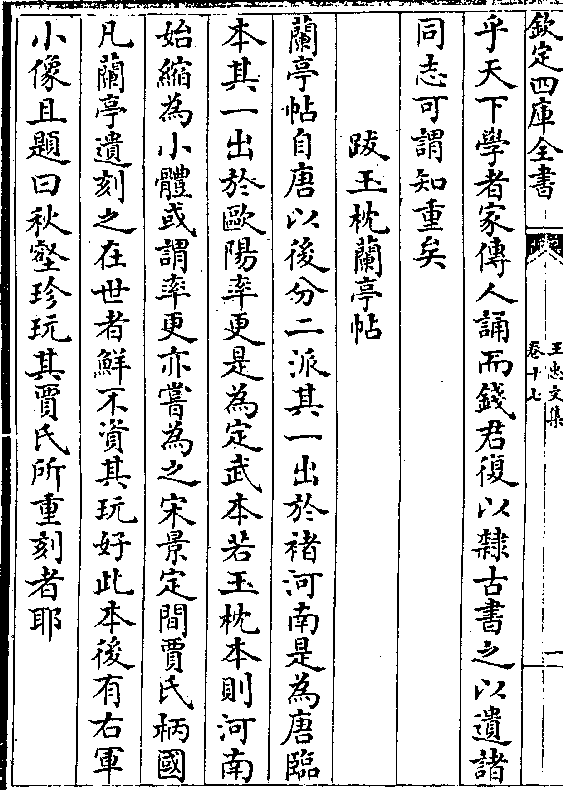 欽定四庫全書
王忠文集
卷十七
一
乎天下學者家傳人誦而錢君復以隸古書之以遺諸
同志可謂知重矣
跋玉枕蘭亭帖
蘭亭帖自唐以後分二派其一出於褚河南是為唐臨
本其一出於歐陽率更是為定武本若玉枕本則河南
始縮為小體或謂率更亦嘗為之宋景定間賈氏柄國
凡蘭亭遺刻之在世者鮮不資其玩好此本後有右軍
小像且題曰秋壑珍玩其賈氏所重刻者耶